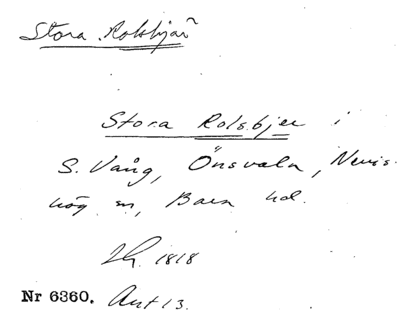 Stora Rolsbjär
Stora Rolsbjer i
S. Vång, Önsvala, Nevis-
hög sn, Bara hd.
1818
Nr 6360. Avt 13.